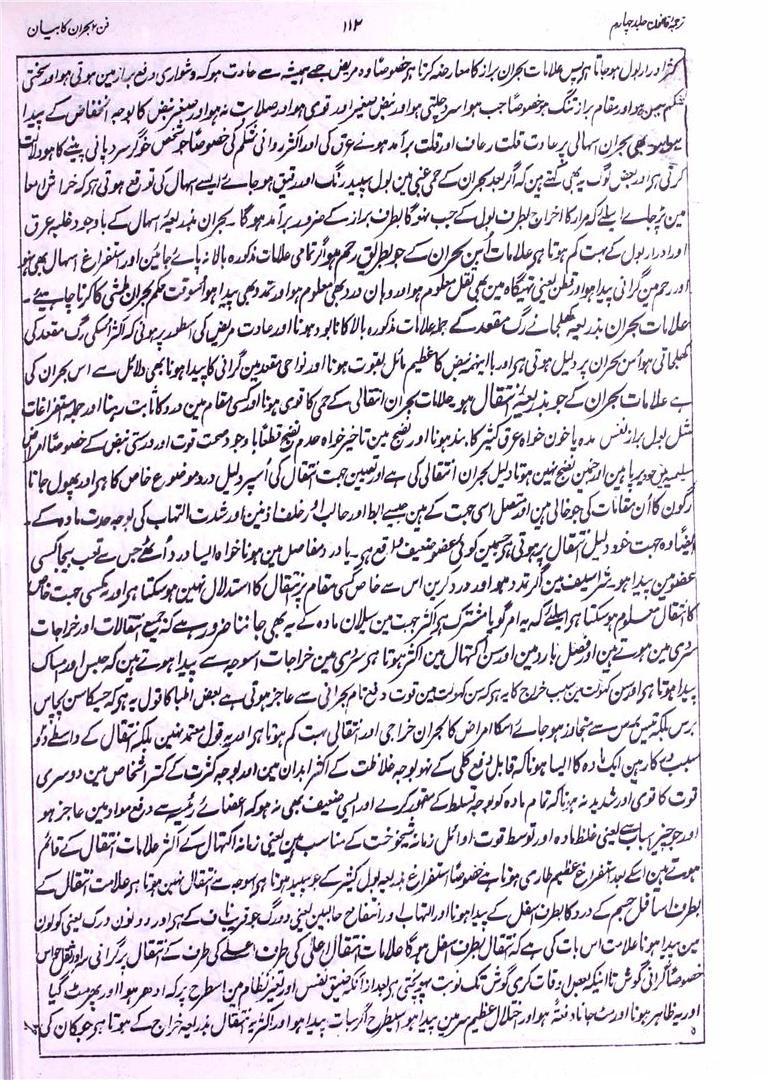 ترجمہ قانون جلد چہارم ۱۱۲ فن ۲ بحران کا بیان
ادرار بول ہو جاتا ہے پس علامات بحران براز کا معارضہ کرتا ہے خصوصاً وہ مریض جسے ہمیشہ سے عادت ہو کہ دشواری دفع براز مین ہوتی ہو اور سختی
شکم مین ہو اور مقام براز تنگ ہو خصوصاً جب ہوا سرد چلتی ہو اور نبض صغیر اور قوی ہو اور صلابت نہ ہو اور صغر نبض کا بوجہ انخفاض کے پیدا
ہوا ہو بھی بحران اسہالی پر عادت قلت رعاف اور قلت برآمد ہونے عرق کی اور اکثر روانی شکم کی خصوصاً جو شخص خوگر سرد پانی پینے کا ہو دلالت
کرتی ہے اور بعض لوگ یہ بھی کہتے ہین کہ اگر بعد بحران کے حمی غبی مین بول سپید رنگ اور رقیق ہو جائے ایسے اسہال کی توقع ہوتی ہے کہ خراش امعا
مین پڑ جائے اسلیے کہ مرار کا اخراج بطرف بول کے جب نہوگا بطرف براز کے ضرور برآمد ہوگا ۔ بحران بذریعہ اسہال کے باوجود غلبہ عرق
اور ادرار بول کے بہت کم ہوتا ہے علامات اُس بحران کے جو بطریق رحم ہو اگر تمامی علامات مذکورہ بالا نہ پائے جائین اور استفراغ اسہال بھی نہو
اور رحم مین گرانی پیدا ہو اور قطن یعنی تہیگاہ مین بھی ثقل معلوم ہو اور وہان درد بھی معلوم ہو اور تمدد بھی پیدا ہو اُسوقت حکم بحران طمثی کا کرنا چاہیے ۔
علامات بحران بذریعہ کھلجانے رگ مقعد کے جملہ علامات مذکورہ بالا کا نابود ہونا اور عادت مریض کی اسطور پر ہونی کہ اکثر اسکی رگ مقعد کی
کھلجاتی ہو اُس بحران پر دلیل ہوتی ہے اور باینہمہ نبض کا عظیم مائل بقوت ہونا اور نواحی مقعد مین گرانی کا پیدا ہونا بھی دلائل سے اس بحران کی
ہے علامات بحران کے جو بذریعہ انتقال ہو علامات بحران انتقالی کے حمی کا قوی ہونا اور کسی مقام مین درد کا ثابت رہنا اور جملہ استفراغات
مثل بول براز نفث مدہ یا خون خواہ عرق کثیر کا بند ہونا اور نضج مین تاخیر خواہ عدم نضج قطعاً باوجود صحت قوت اور درستی نبض کے خصوصاً امراض
سلیمہ مین دیرپا ہین اور جنمین نضج نہین ہوتا دلیل بحران انتقالی کی ہے اور تعیین جہت انتقال کی اُسپر دلیل درد موضع خاص کا ہے اور پھول جانا
رگون کا اُن مقامات کی جو خالی ہین اور متصل اسی جہت کے ہین جیسے ابط اور حالب اور خلف اذنین اور شدت التہاب کی بوجہ حدت مادہ کے ۔
ایضاً وہ جہت خود دلیل انتقال پر ہوتی ہے جسمین کوئی عضو ضعیف واقع ہے ۔ یا درد مفاصل مین ہونا خواہ ایسا درد اُٹھے جس سے تعب بیجا کسی
عضو مین پیدا ہو شراسیف مین اگر تمدد ہو اور درد رہین اس سے خاص کسی مقام پر انتقال کا استدلال نہین ہو سکتا ہے اور نہ کسی جہت خاص
کا انتقال معلوم ہو سکتا ہے اسلیے کہ یہ امر گویا مشترک ہے اکثر جہت مین سیلان مادہ کے یہ بھی جاننا ضرور ہے کہ جمیع انتقالات اور خراجات
سردی مین ہوتے ہین اور فصل بارد مین اور سن اکتہال مین اکثر ہوتا ہے سردی مین خراجات اسوجہ سے پیدا ہوتے ہین کہ حبس اور امساک
پیدا ہوتا ہے اور سن کہولت مین سبب خراج کا یہ ہے کہ سن کہولت مین قوت دفع تام بحرانی سے عاجز ہوتی ہے بعض اطبا کا قول یہ ہے کہ جسکا سن پچاس
برس بلکہ تیس برس سے متجاوز ہو جائے اسکا امراض کا بحران خراجی اور انتقالی بہت کم ہوتا ہے اور یہ قول معتمد نہین بلکہ انتقال کے واسطے دو
سبب درکار ہین ایک مادہ کا ایسا ہونا کہ قابل دفع کلی کے نہو بوجہ غلاظت کے اکثر ابدان مین اور بوجہ کثرت کے کمتر اشخاص مین دوسری
قوت کا قوی اور شدید نہ ہونا کہ تمام مادہ کو بوجہ تسلط کے مقہور کرے اور ایسی ضعیف بھی نہ ہو کہ اعضائے رئیسہ سے دفع مواد مین عاجز ہو
اور جو چیز اسباب سے یعنی غلظ مادہ اور توسط قوت اوائل زمانہ شیخوخت کے مناسب ہین یعنی زمانہ اکتہال کے اکثر علامات انتقال کے قائم
ہوتے ہین اسکے بعد استفراغ عظیم طاری ہوتا ہے خصوصاً استفراغ بذریعہ بول کثیر کے جو سپید ہوتا ہے اسوجہ سے انتقال نہین ہوتا ہے علامت انتقال کے
بطرف اسافل جسم کے درد کا بطرف سفل کے پیدا ہونا اور التہاب اور انتفاخ حالبین یعنی دو رگ جو قریب ناف کے ہے اور دونون ورک یعنی کولون
مین پیدا ہونا علامت اس بات کی ہے کہ انتقال بطرف اسفل ہوگا علامات انتقال اعلی کی طرف اعلے کی طرف کے انتقال پر گرانی سر اور ثقل حواس
خصوصاً گرانی گوش تا اینکہ بعض اوقات کری گوش تک نوبت پہونچتی ہے بعد ازانکہ ضیق نفس اور تغیر نظام مین اسطرح پر کہ ادھر ہوا اور پھر مٹ گیا
اور یہ ظاہر ہونا اور مٹ جانا دفعۃً ہو اور اختلال عظیم سر مین پیدا ہو اسیطرح اگر سبات پیدا ہو اور اکثر یہ انتقال بذریعہ خراج کے ہوتا ہے جو کان کی